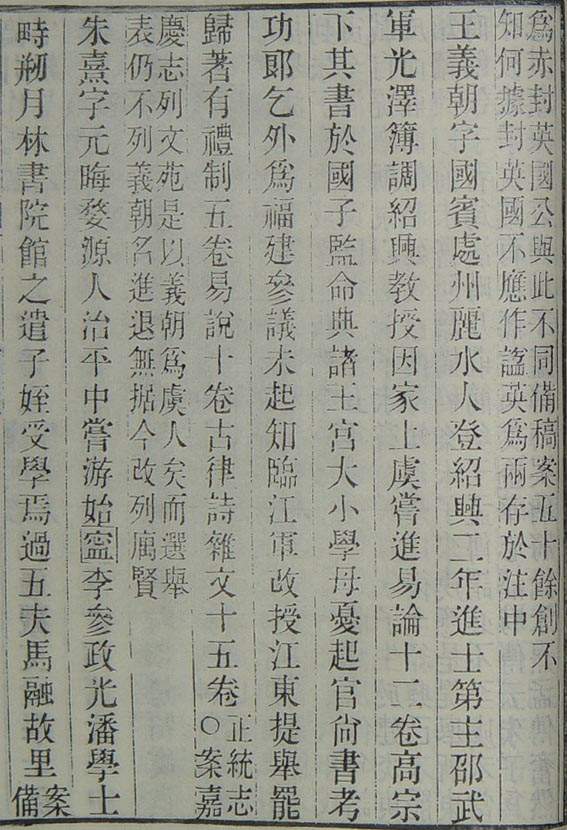 爲赤封英國公與此不同備稿案五十餘創不
知何據封英國不應作諡英爲兩存於注中
王義朝字國賓處州麗水人登紹興二年進士第主邵武
軍光澤簿調紹興教授因家上虞嘗進易論十二卷高宗
下其書於國子監命典諸王宮大小學母憂起官尙書考
功郎乞外爲福建參議未起知臨江軍改授江東提舉罷
歸著有禮制五卷易說十卷古律詩雜文十五卷○正統志案嘉
慶志列文苑是以義朝爲虞人矣而選舉
表仍不列義朝名進退無据今改列厲賢
朱熹字元晦婺源人治平中嘗游始寍李參政光潘學士
畤剏月林書院館之遣子姪受學焉過五夫馬融故里案備